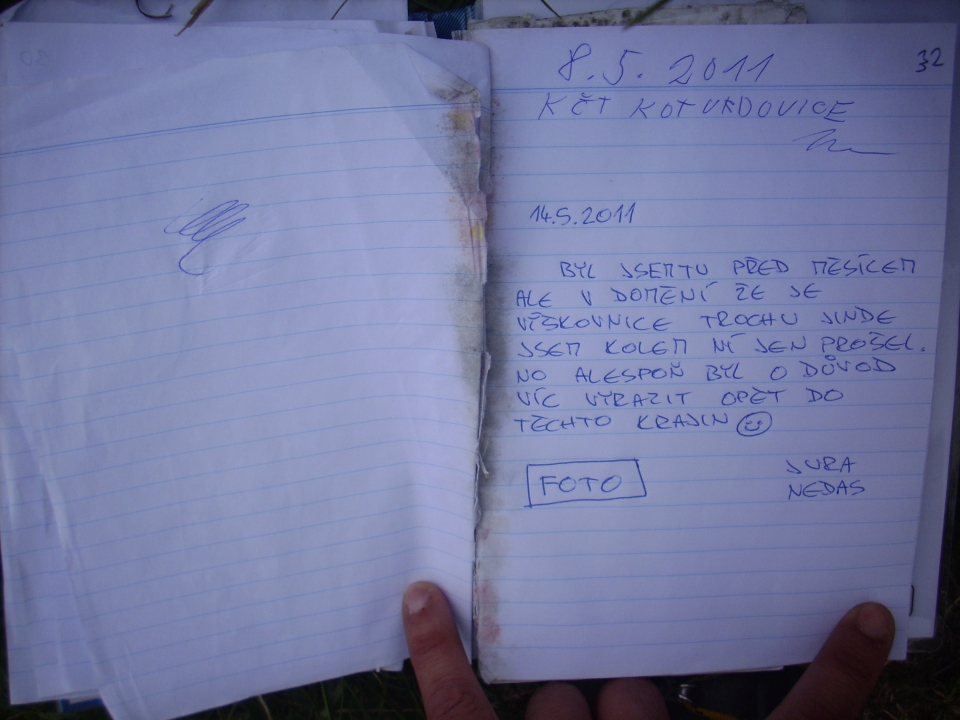 32
8.5.2011
KČT KOTVRDOVICE
14.5.2011
BYL JSEM TU PŘED MĚSÍCEM
ALE V DOMĚNÍ ŽE JE
VÝŠKOVNICE TROCHU JINDE
JSEM KOLEM NÍ JEN PROŠEL.
NO ALESPOŇ BYL O DŮVOD
VÍC VYRAZIT OPĚT DO
TĚCHTO KRAJIN ☺
FOTO
JURA
NEDAS